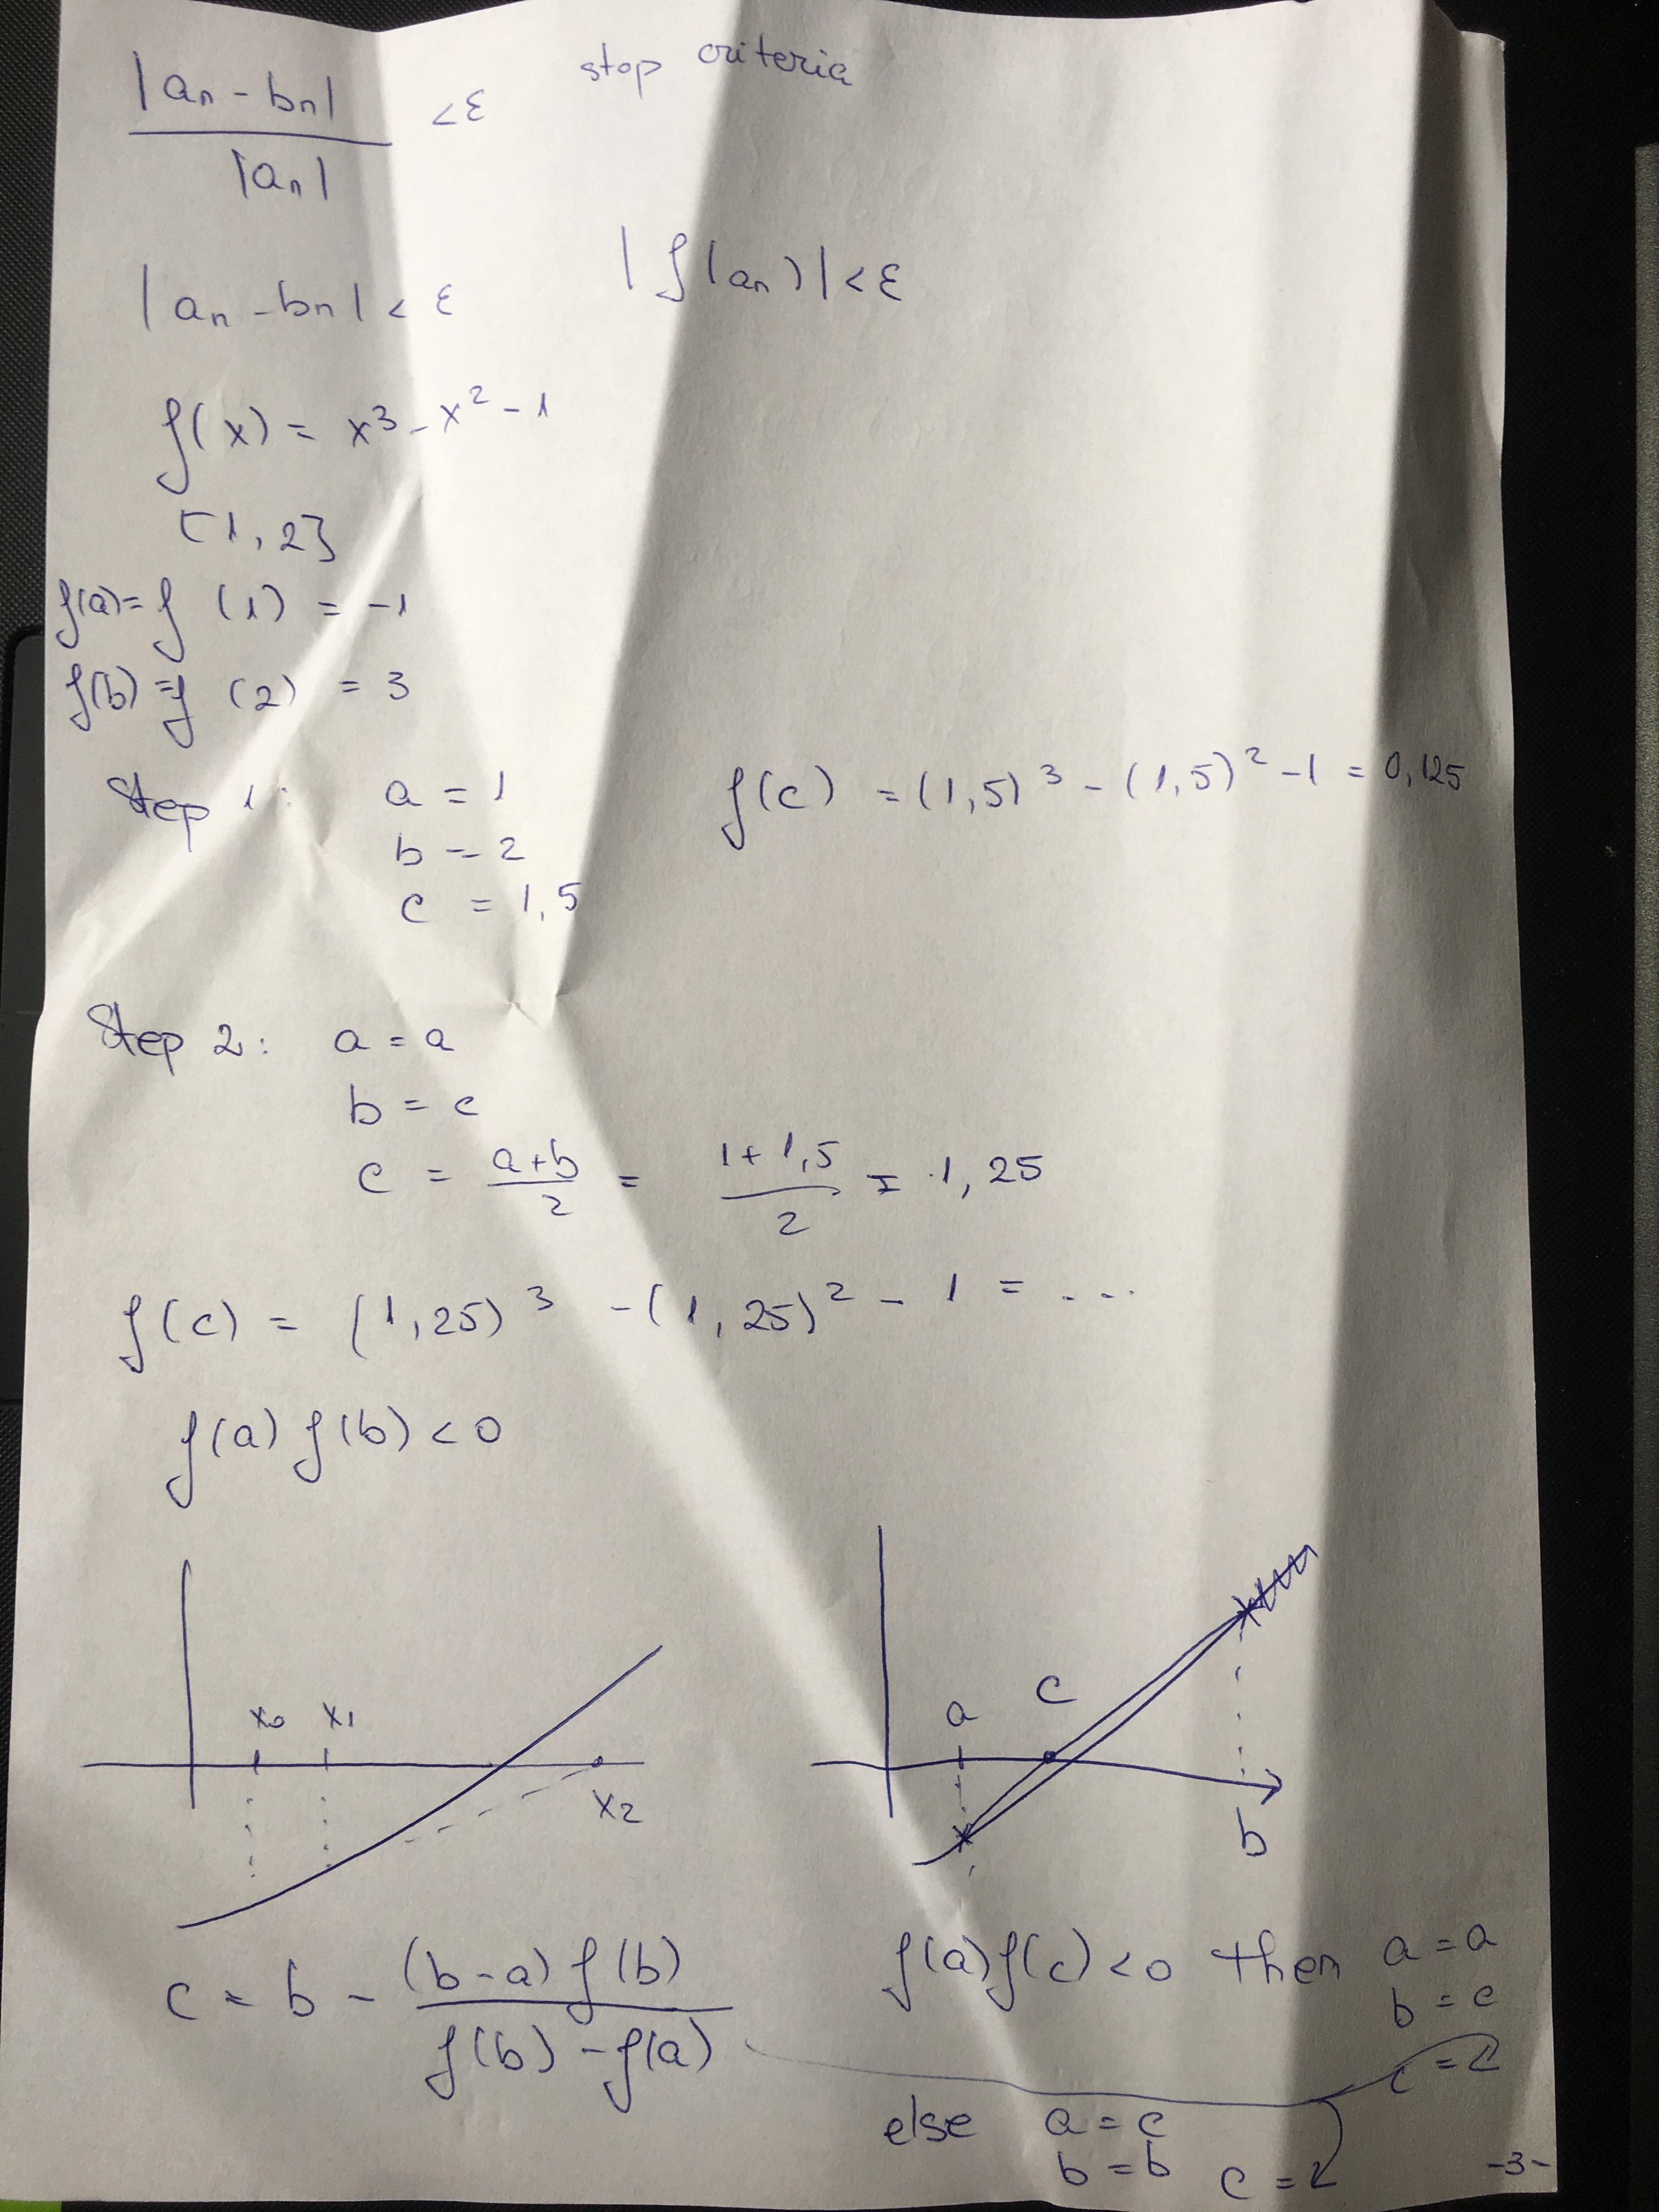 |aₙ - bₙ| / |aₙ| < ε stop criteria
|aₙ - bₙ| < ε |f(aₙ)| < ε
f(x) = x³ - x² - 1
[1, 2]
f(a) = f(1) = -1
f(b) = f(2) = 3
Step 1: a = 1 f(c) = (1,5)³ - (1,5)² - 1 = 0,125
b = 2
c = 1,5
Step 2: a = a
b = c
c = (a+b)/2 = (1+1,5)/2 = 1,25
f(c) = (1,25)³ - (1,25)² - 1 = ...
f(a) f(b) < 0
x₀ x₁
x₂
a c
b
c = b - (b-a) f(b) / (f(b) - f(a))
f(a) f(c) < 0 then a = a
b = c
c =
else a = c
b = b c =
-3-